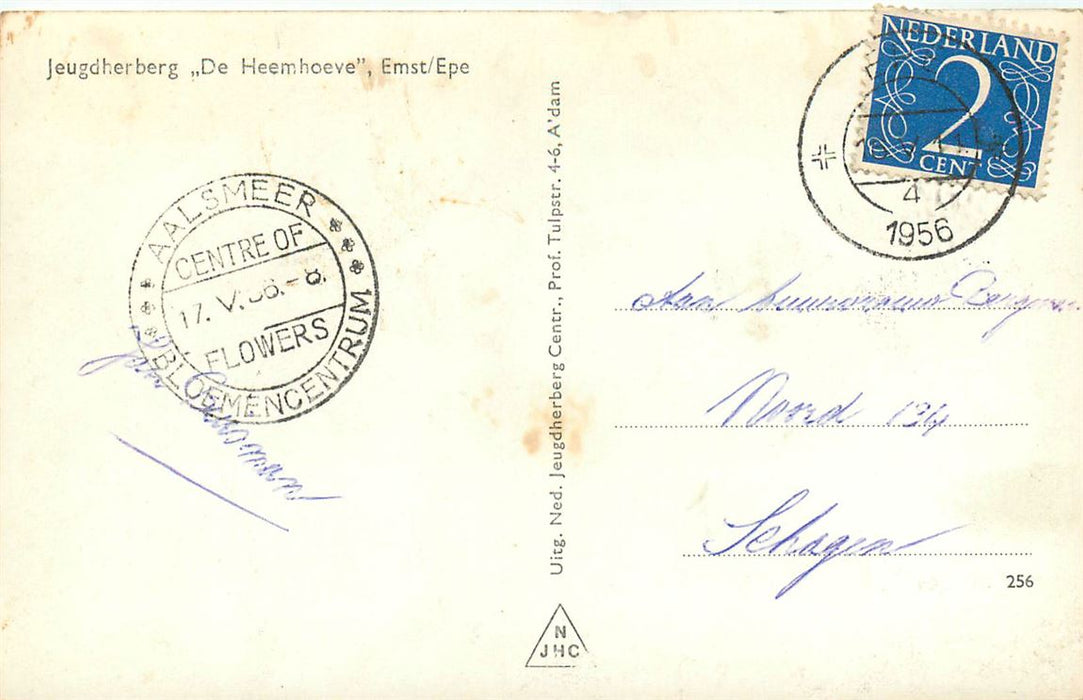 Jeugdherberg „De Heemhoeve”, Emst/Epe
NEDERLAND
2
CENT
4
1956
AALSMEER
CENTRE OF
17. V. 56.-8.
FLOWERS
BLOEMENCENTRUM
Jan
Uitg. Ned. Jeugdherberg Centr., Prof. Tulpstr. 4-6, A'dam
Aan
Noord 134
Schagen
256
N
JHC